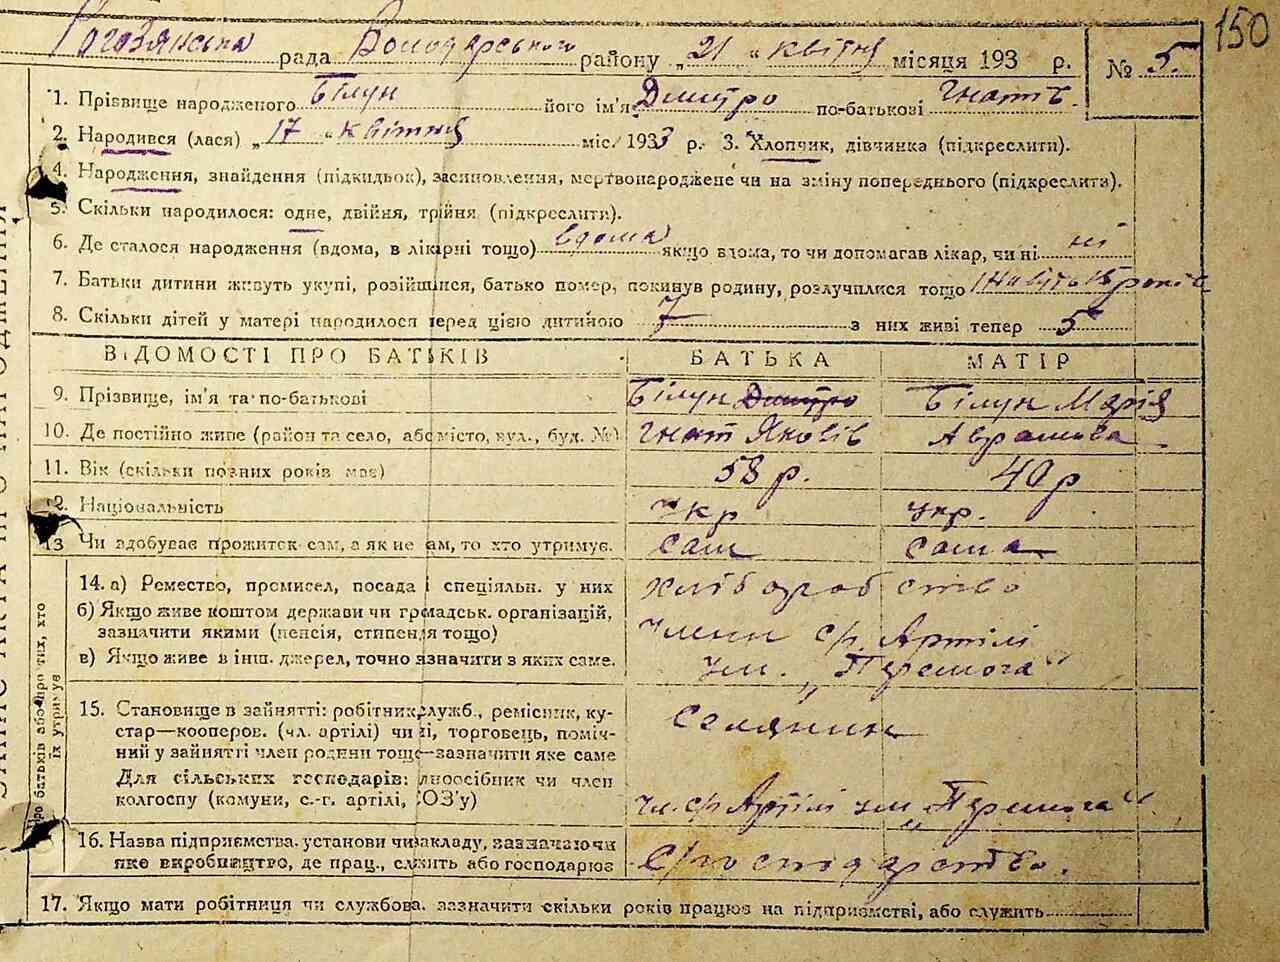 150
Рогозянська рада Володарського району „21 “ квітня місяця 193 р. № 5.
1. Прізвище народженого Білун його ім'я Дмитро по-батькові Гнатів.
2. Народився (лася) „ 17 “ квітня міс. 1933 р. 3. Хлопчик, дівчинка (підкреслити).
4. Народження, знайдення (підкидьок), засиновлення, мертвонароджене чи на зміну попереднього (підкреслити).
5. Скільки народилося: одне, двійня, трійня (підкреслити).
6. Де сталося народження (вдома, в лікарні тощо) вдома якщо вдома, то чи допомагав лікар, чи ні ні
7. Батьки дитини живуть укупі, розійшлися, батько помер, покинув родину, розлучилися тощо Живуть років
8. Скільки дітей у матері народилося перед цією дитиною 7 з них живі тепер 5
ВІДОМОСТІ ПРО БАТЬКІВ БАТЬКА МАТІР
9. Прізвище, ім'я та по-батькові Білун Дмитро Білун Марія
10. Де постійно живе (район та село, або місто, вул., буд. №) Гнат Яковів Аврамова
11. Вік (скільки повних років має) 58 р. 40 р
12. Національність Укр укр.
13 Чи здобуває прожиток сам, а як не сам, то хто утримує. сам сама
Про батьків або про тих, хто їх утримує
14. а) Ремество, промисел, посада і спеціяльн. у них хліборобство
б) Якщо живе коштом держави чи громадськ. організацій,
зазначити якими (пенсія, стипендія тощо) члени с/г. Артілі
в) Якщо живе в інш. джерел, точно зазначити з яких саме. ім. „Перемога“
15. Становище в зайнятті: робітник, служб., ремісник, ку- селянин
стар—кооперов. (чл. артілі) чи ні, торговець, поміч-
ний у зайнятті член родини тощо—зазначити яке саме
Для сільських господарів: одноосібник чи член
колгоспу (комуни, с.-г. артілі, СОЗ'у) чл. с/г Артілі ім „Перемога“
16. Назва підприємства, установи чи закладу, зазначаючи
яке виробництво, де прац., служить або господарює С/господарство.
17. Якщо мати робітниця чи службова, зазначити скільки років працює на підприємстві, або служить